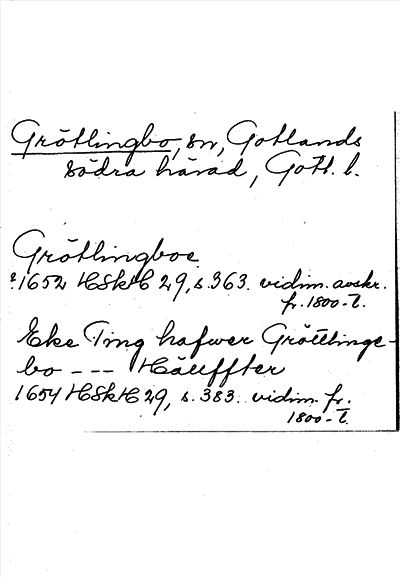 Grötlingbo, sn, Gotlands
södra härad, Gotl. l.
Grötlingboe
? 1652 HSkH 29, s. 363. vidim. avskr.
fr. 1800-t.
Eke Ting hafwer Gröttlinge-
bo - - - Häuffter
1654 HSkH 29, s. 383. vidim. fr.
1800-t.